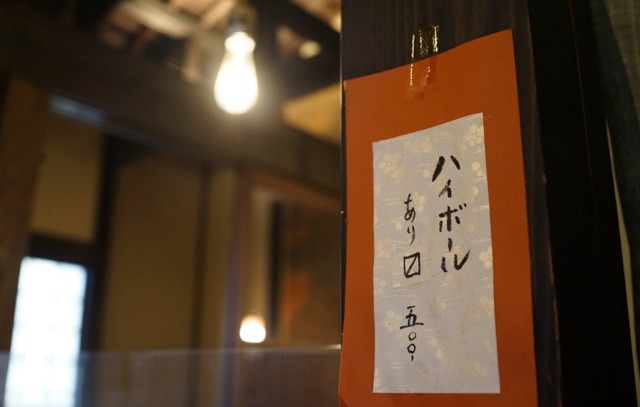 ハイボール
あり〼 五〇〇、